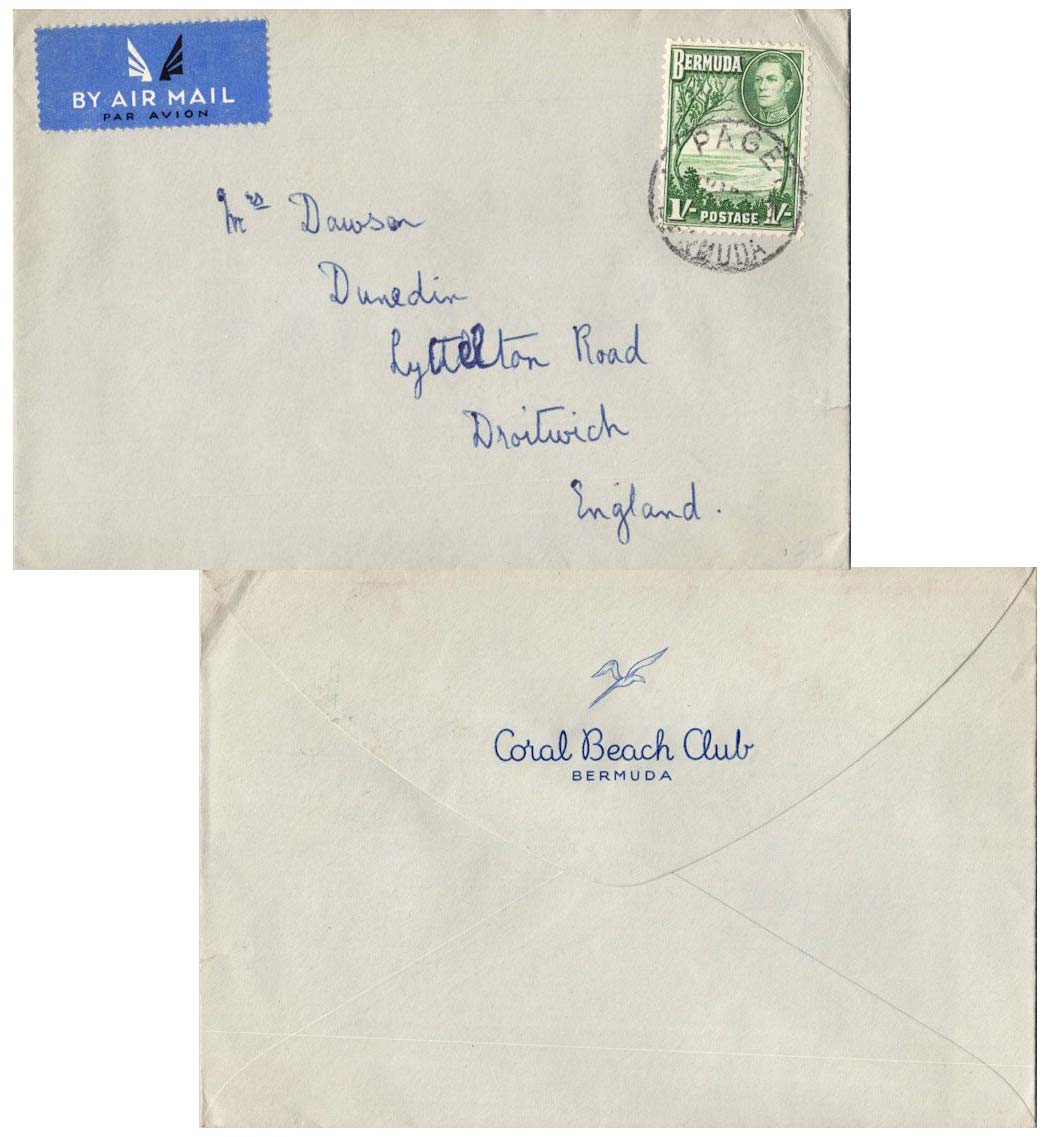 BY AIR MAIL
PAR AVION
BERMUDA
1/- POSTAGE 1/-
PAGE
RMUDA
Mrs Dawson
Dunedin
Lyttelton Road
Droitwich
England.
Coral Beach Club
BERMUDA